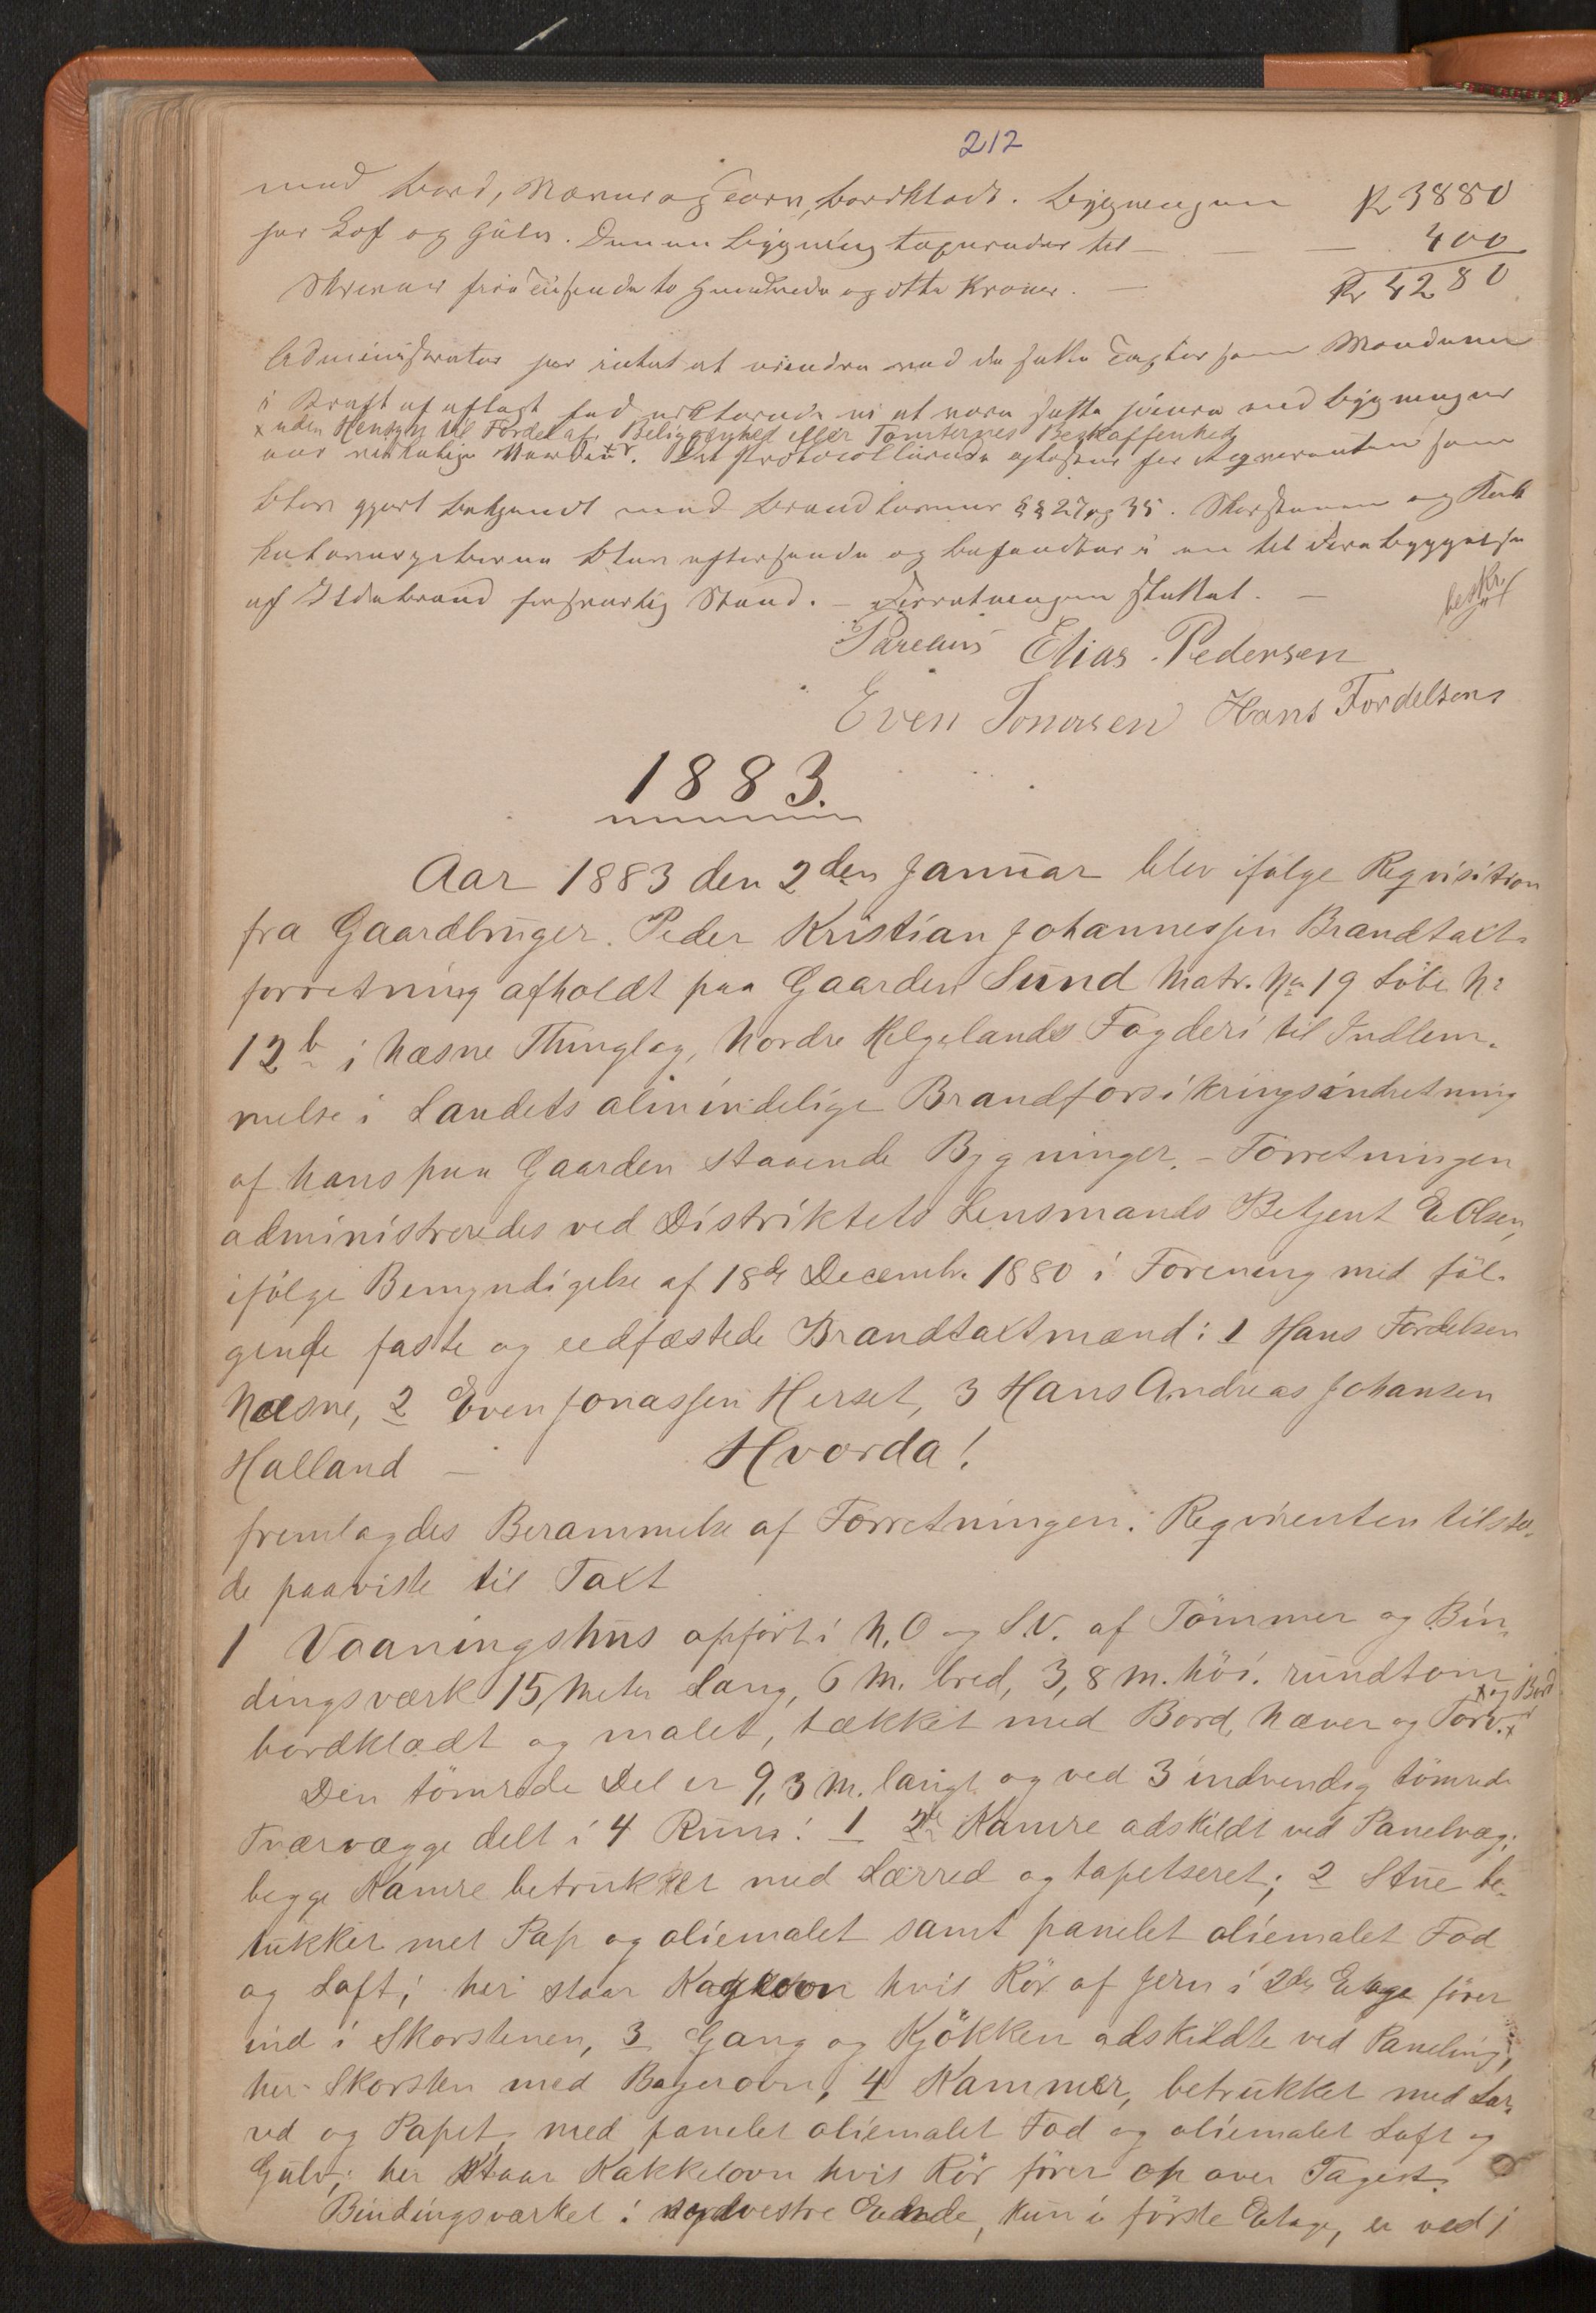 212
med Bord, Næver og Torv, bordklædt. Bygningen Kr 3880
har Loft og Gulv. Denne Bygning taxeredes til — — 400
Skriver fire Tusende to Hundrede og otti Kroner. — Kr 4280
Administrator har intet at erindre ved de satte Taxter som Mændene
i Kraft af aflagt Eed erklærede at være satte jævnt med Bygningernes
x uden Hensyn til Fordel af Beliggenhed eller Tomternes Beskaffenhed
sande nuværende Værdi x. Det Protocollerede oplæstes for Reqvirenten som
blev gjort bekjendt med Brandlovens §§ 27 og 35. Skorstenen og Kak
kelovnsrørerne blev efterseede og befandtes i en til Forebyggelse
af Ildebrand forsvarlig Stand. — Forretningen sluttet. —
beskr.
Elias Pedersen
Even Jonasen Hans Fordelsens
1883.
Aar 1883 den 2den Januar blev ifølge Reqvisition
fra Gaardbruger Peder Kristian Johannessen Brandtaxt-
forretning afholdt paa Gaarden Sund Matr. No 19 Löbe No
12b i Næsne Thinglag, Nordre Helgelands Fogderi til Indlem-
melse i Landets almindelige Brandforsikringsindretning
af hans paa Gaarden staaende Bygninger. – Forretningen
administreredes ved Distriktets Lensmands Betjent E Olsen,
ifølge Bemyndigelse af 18de Decembr. 1880 i Forening med föl-
gende faste og eedfæstede Brandtaxtmænd: 1 Hans Fordelsen
Næsne, 2 Even Jonassen Herset, 3 Hans Andreas Johansen
Halland – Hvorda!
fremlagdes Berammelse af Forretningen. Reqvirenten tilste-
de paaviste til Taxt
1 Vaaningshus opfört i N.O og S.V. af Tömmer og Bin-
dingsværk 15 Meter Lang, 6 M. bred, 3,8 M. höi. rundtom
x og Bord
bordklædt og malet, tækket med Bord, Næver og Torv. x
Den tömrede Del er 9,3 M. langt og ved 3 indvendig tömrede
Tværvægge delt i 4 Rum: 1 2de Kamre adskildt ved Panelvæg;
begge Kamre betrukket med Lærred og tapetseret; 2 Stue be-
tukket met Pap og oliemalet samt panelet oliemalet Fod
og Loft; her staar Kagkelovn hvis Rör af Jern i 2den Etage förer
ind i Skorstenen, 3 Gang og Kjökken adskildte ved Paneling,
her Skorsten med Bagerovn, 4 Kammer, betrukket med Lær-
red og Papet, med panelet oliemalet Fod og oliemalet Loft og
Gulv; her staar Kakkelovn hvis Rör förer op over Taget.
Bindingsværket i sydvestre Ende, kun i förste Etage, er ved 1